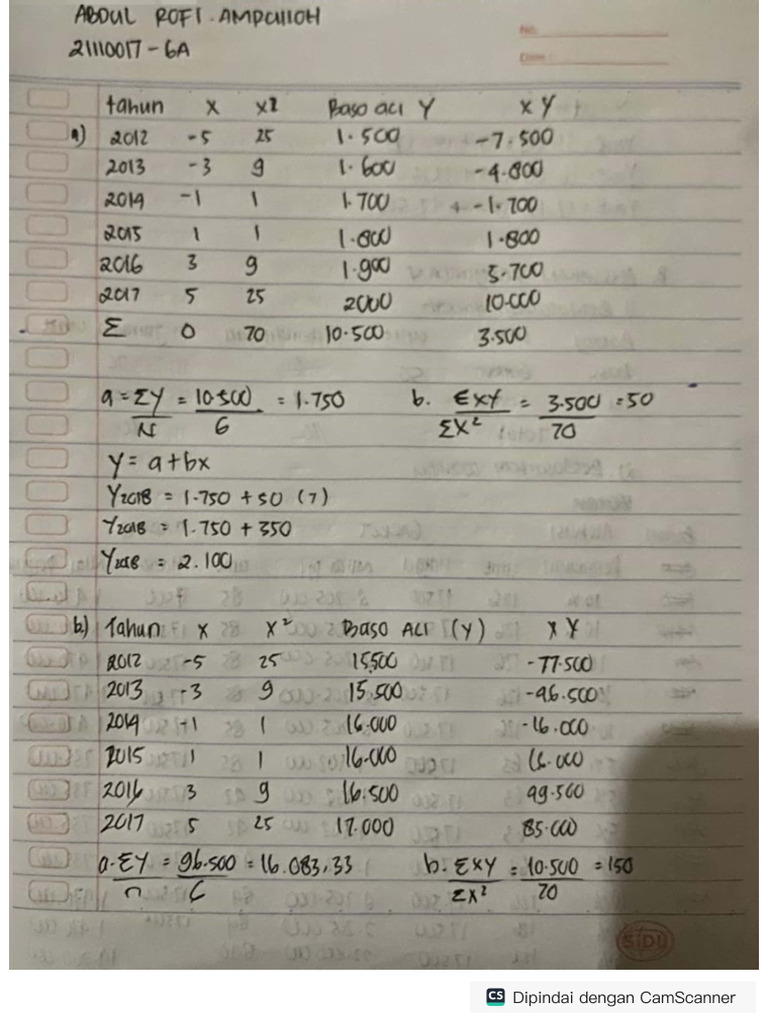 ABDUL ROFI. AMPCHIOH
21110017 - 6A
No:
Date:
tahun x x2 Baso aci Y x Y
a) 2012 -5 25 1.500 -7.500
2013 -3 9 1.600 -4.800
2014 -1 1 1.700 + -1.700
2015 1 1 1.800 1.800
2016 3 9 1.900 5.700
2017 5 25 2000 10.000
Σ 0 70 10.500 3.500
a = ΣY = 10.500 = 1.750 b. ΣXY = 3.500 = 50
N 6 ΣX² 70
Y = a + bx
Y2018 = 1.750 + 50 (7)
Y2018 = 1.750 + 350
Y2018 = 2.100
b) Tahun x x² Baso ACI (Y) x Y
2012 -5 25 15.500 -77.500
2013 -3 9 15.500 -46.500
2014 -1 1 16.000 -16.000
2015 1 1 16.000 16.000
2016 3 9 16.500 49.500
2017 5 25 17.000 85.000
a. ΣY = 96.500 = 16.083,33 b. ΣXY = 10.500 = 150
n 6 ΣX² 70
SiDU
CS Dipindai dengan CamScanner